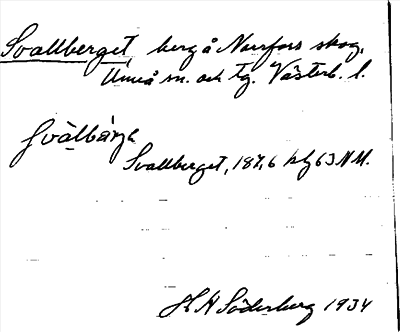 Svallberget berg å Norrfors skog,
Umeå sn. och tg. Västerb. l.
Svallberget, 187,6 63 NM.
H H Söderberg 1934